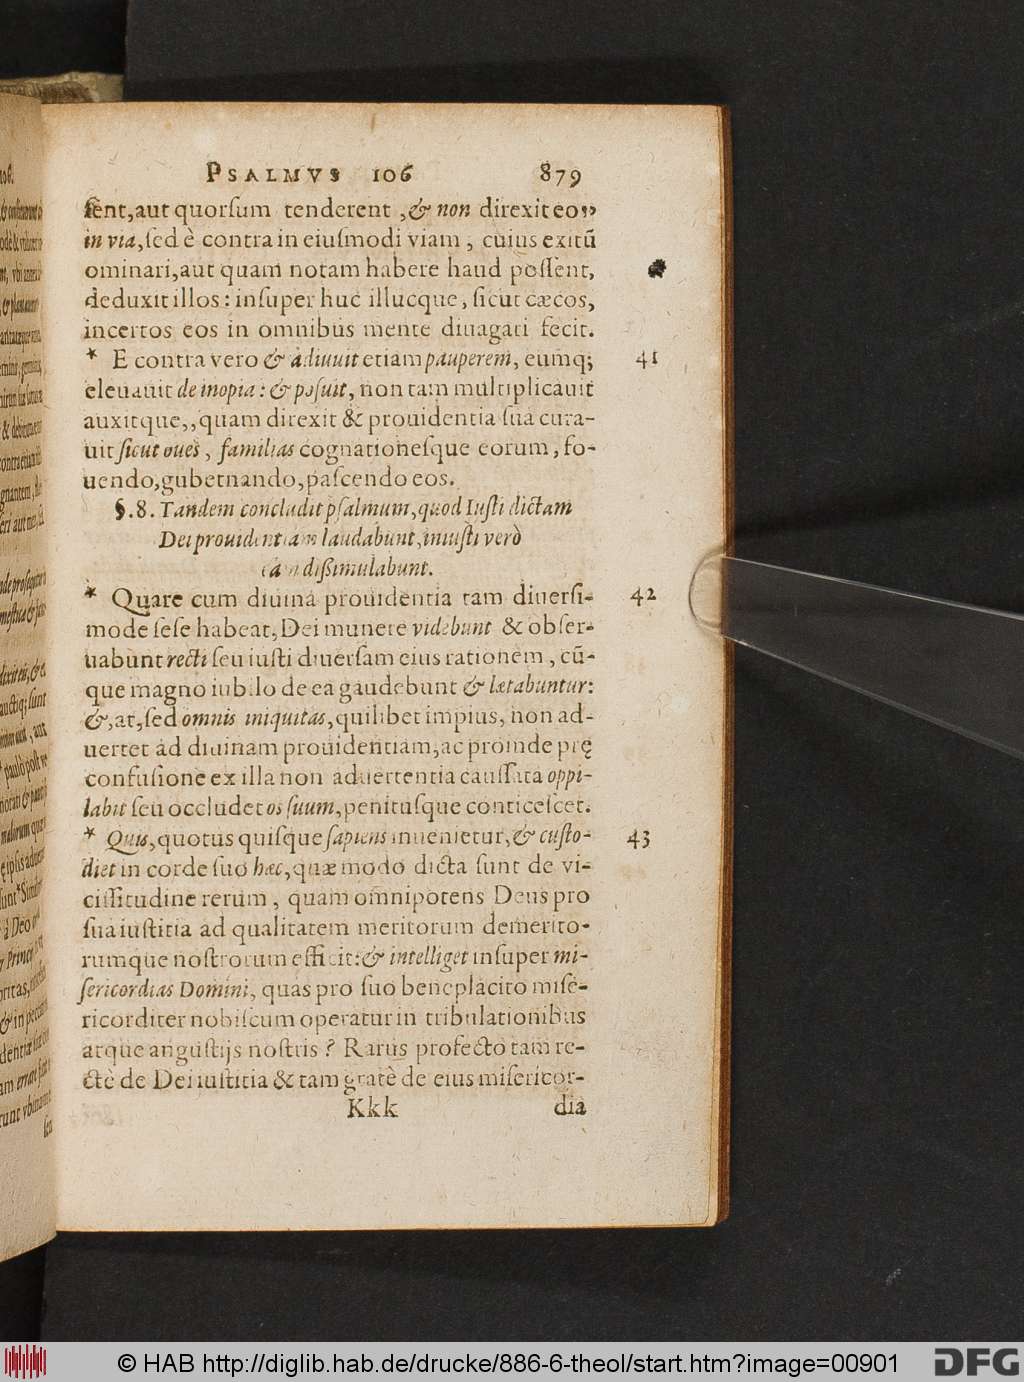 PSALMVS 106 879
sent, aut quorsum tenderent, & non direxit eos
in via, sed è contra in eiusmodi viam, cuius exitũ
ominari, aut quam notam habere haud possent,
deduxit illos: insuper huc illucque, sicut cæcos,
incertos eos in omnibus mente diuagari fecit.
* E contra vero & adiuuit etiam pauperem, eumq; 41
eleuauit de inopia: & posuit, non tam multiplicauit
auxitque,, quam direxit & prouidentia sua cura-
uit sicut oues, familias cognationesque eorum, fo-
uendo, gubernando, pascendo eos.
§.8. Tandem concludit psalmum, quod Iusti dictam
Dei prouidentiam laudabunt, iniusti verò
eam dissimulabunt.
* Quare cum diuina prouidentia tam diuersi- 42
mode sese habeat, Dei munere videbunt & obser-
uabunt recti seu iusti diuersam eius rationem, cũ-
que magno iubilo de ea gaudebunt & lætabuntur:
&, at, sed omnis iniquitas, quilibet impius, non ad-
uertet ad diuinam prouidentiam, ac proinde prę
confusione ex illa non aduertentia caussata oppi-
labit seu occludet os suum, penitusque conticescet.
* Quis, quotus quisque sapiens inuenietur, & custo- 43
diet in corde suo hæc, quæ modo dicta sunt de vi-
cissitudine rerum, quam omnipotens Deus pro
sua iustitia ad qualitatem meritorum demerito-
rumque nostrorum efficit: & intelliget insuper mi-
sericordias Domini, quas pro suo beneplacito mise-
ricorditer nobiscum operatur in tribulationibus
atque angustijs nostris? Rarus profecto tam re-
ctè de Dei iustitia & tam gratè de eius misericor-
Kkk dia
© HAB http://diglib.hab.de/drucke/886-6-theol/start.htm?image=00901
DFG